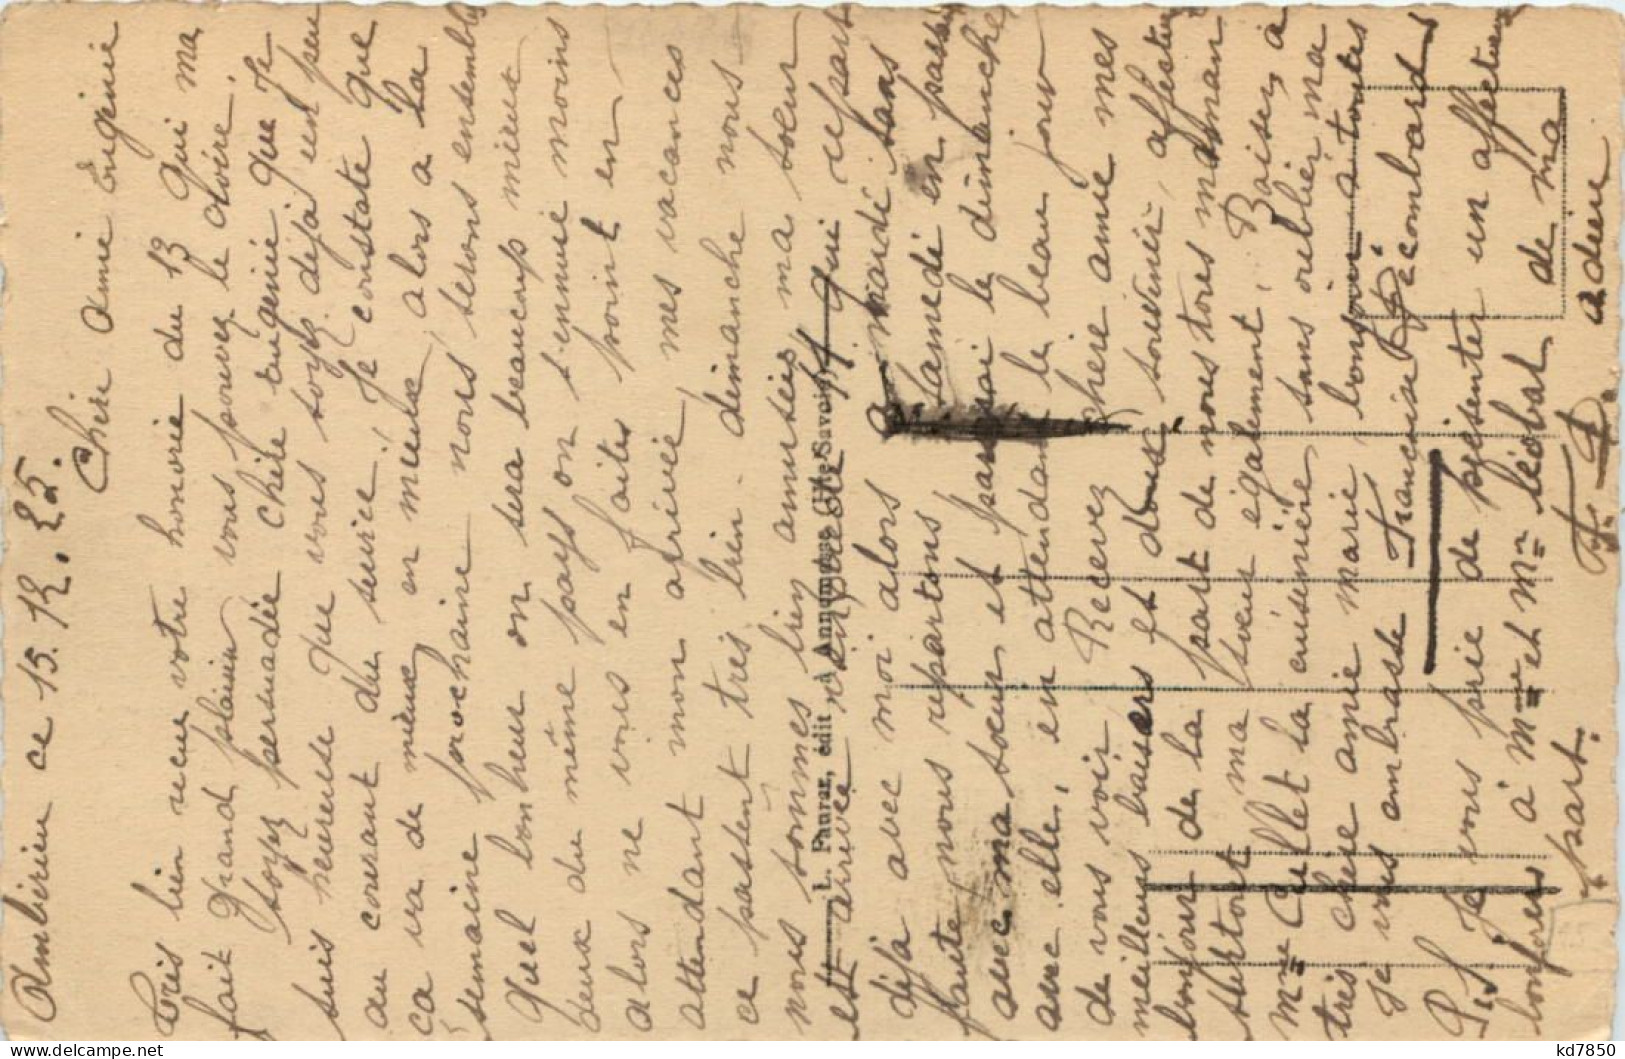 Ambérieu ce 15.12.25.
Chère amie Eugénie
Très bien recue votre honorée du 13 qui ma
fait grand plaisir vous pouvez le croire.
Soyez persuadée chère Eugénie que je
suis heureuse que vous soyez déjà un peu
au courant du service! Je constate que
ça va de mieux en mieux, alors a la
semaine prochaine nous serons ensemble
quel bonheur on sera beaucoup mieux
deux du même pays on s'ennuie moins
alors ne vous en faites point en
attendant mon arrivée mes vacances
ce passent très bien. dimanche nous
nous sommes bien amusées ma sœur
est arrivée qui repart
déjà avec moi alors mardi sans
faute nous repartons samedi en passant
avec ma sœur et passerai le dimanche
avec elle, en attendant le beau jour
de vous voir Recevez chère amie mes
meilleurs baisers et doux souvenir, affectueux
bonjour de la part de nous tores maman
surtout ma sœur également. Baisez à
Mme Cullet la cuisinière sans oublier ma
très chère amie marie, bonjour à toutes
Je vous embrasse Francoise Décombard
P.S. Je vous prie de présenter un affectueux
bonjour à Mme et Mr Léobat de ma
part. F. D. adieu
L. Fauraz, édit. à Annemasse (Hte-Savoie)
kd7850